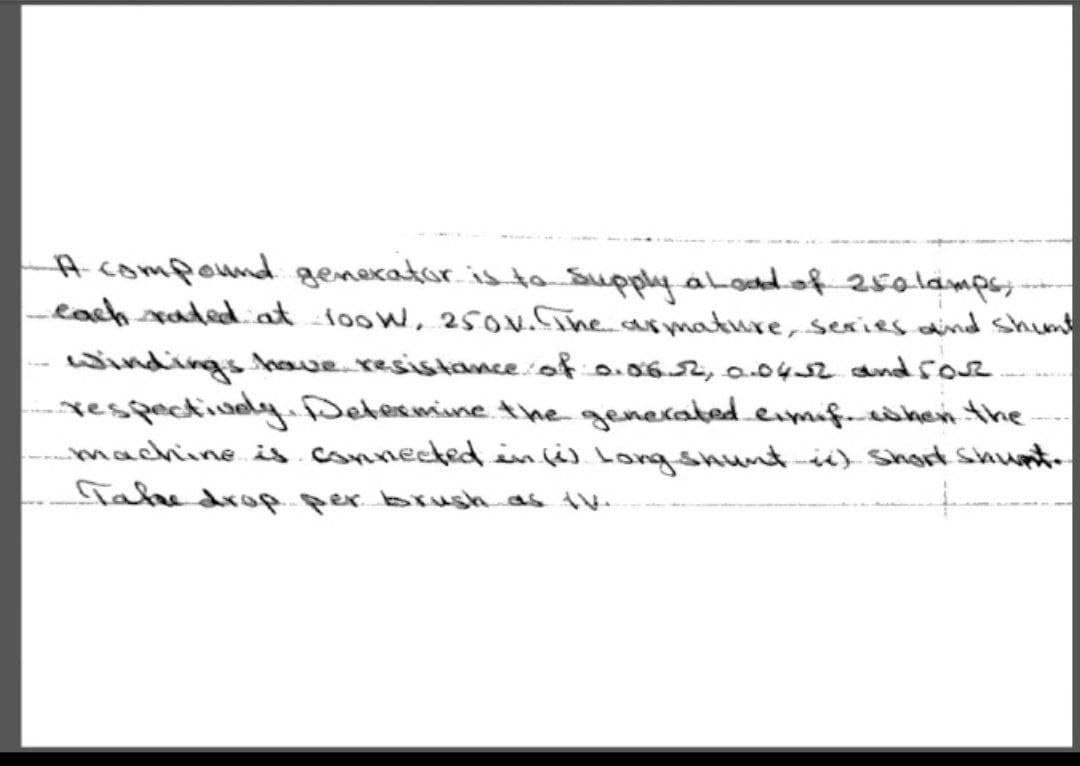 A compound generator is to supply a Load of 250 lamps,
each rated at 100W, 250V. The armature, series and shunt
windings have resistance of 0.06 Ω, 0.04 Ω and 50 Ω
respectively. Determine the generated e.m.f. when the
machine is connected in (i) Long shunt ii) Short Shunt.
Take drop per brush as 1V.